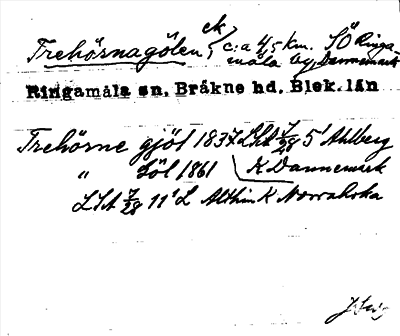 Trehörnagölen, ek, c:a 4,5 km. SÖ Ringa-
måla by, Dannemark
Ringamåla sn. Bräkne hd. Blek. län
Trehörne gjöl 1837 LSA 7/28 5' Ahlberg
" Göl 1861 K Dannemark
LSA 7/28 11' L Althin K Norrahoka